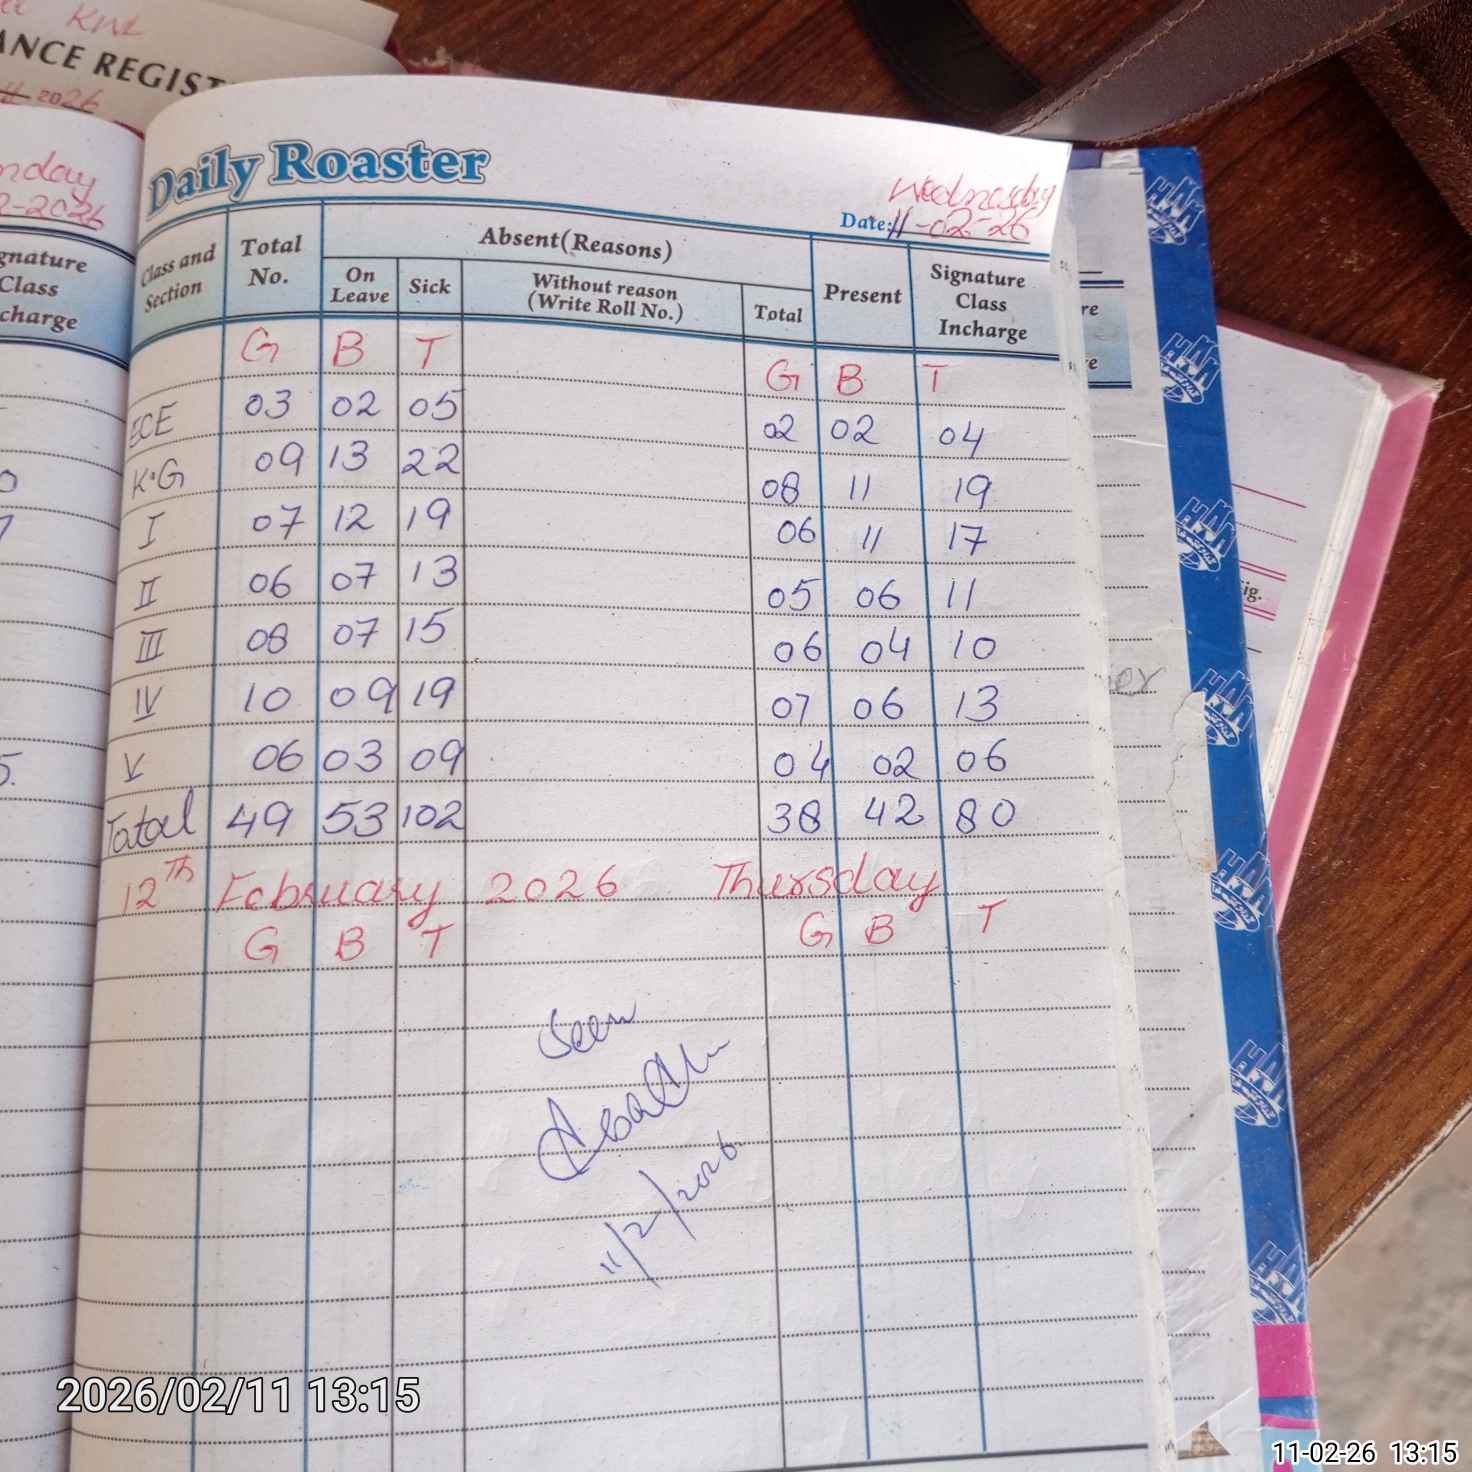 KNL
ANCE REGIST
2026
nday
2-2026
gnature
Class
charge
Daily Roaster
Wednesday
Date: 11-02-26
Class and Section
Total No.
Absent(Reasons)
On Leave
Sick
Without reason
(Write Roll No.)
Total
Present
Signature
Class
Incharge
G B T G B T
ECE 03 02 05 02 02 04
K.G 09 13 22 08 11 19
I 07 12 19 06 11 17
II 06 07 13 05 06 11
III 08 07 15 06 04 10
IV 10 09 19 07 06 13
V 06 03 09 04 02 06
Total 49 53 102 38 42 80
12th February 2026 Thursday
G B T G B T
Seen
11/2/2026
re
e
ig.
2026/02/11 13:15
11-02-26 13:15